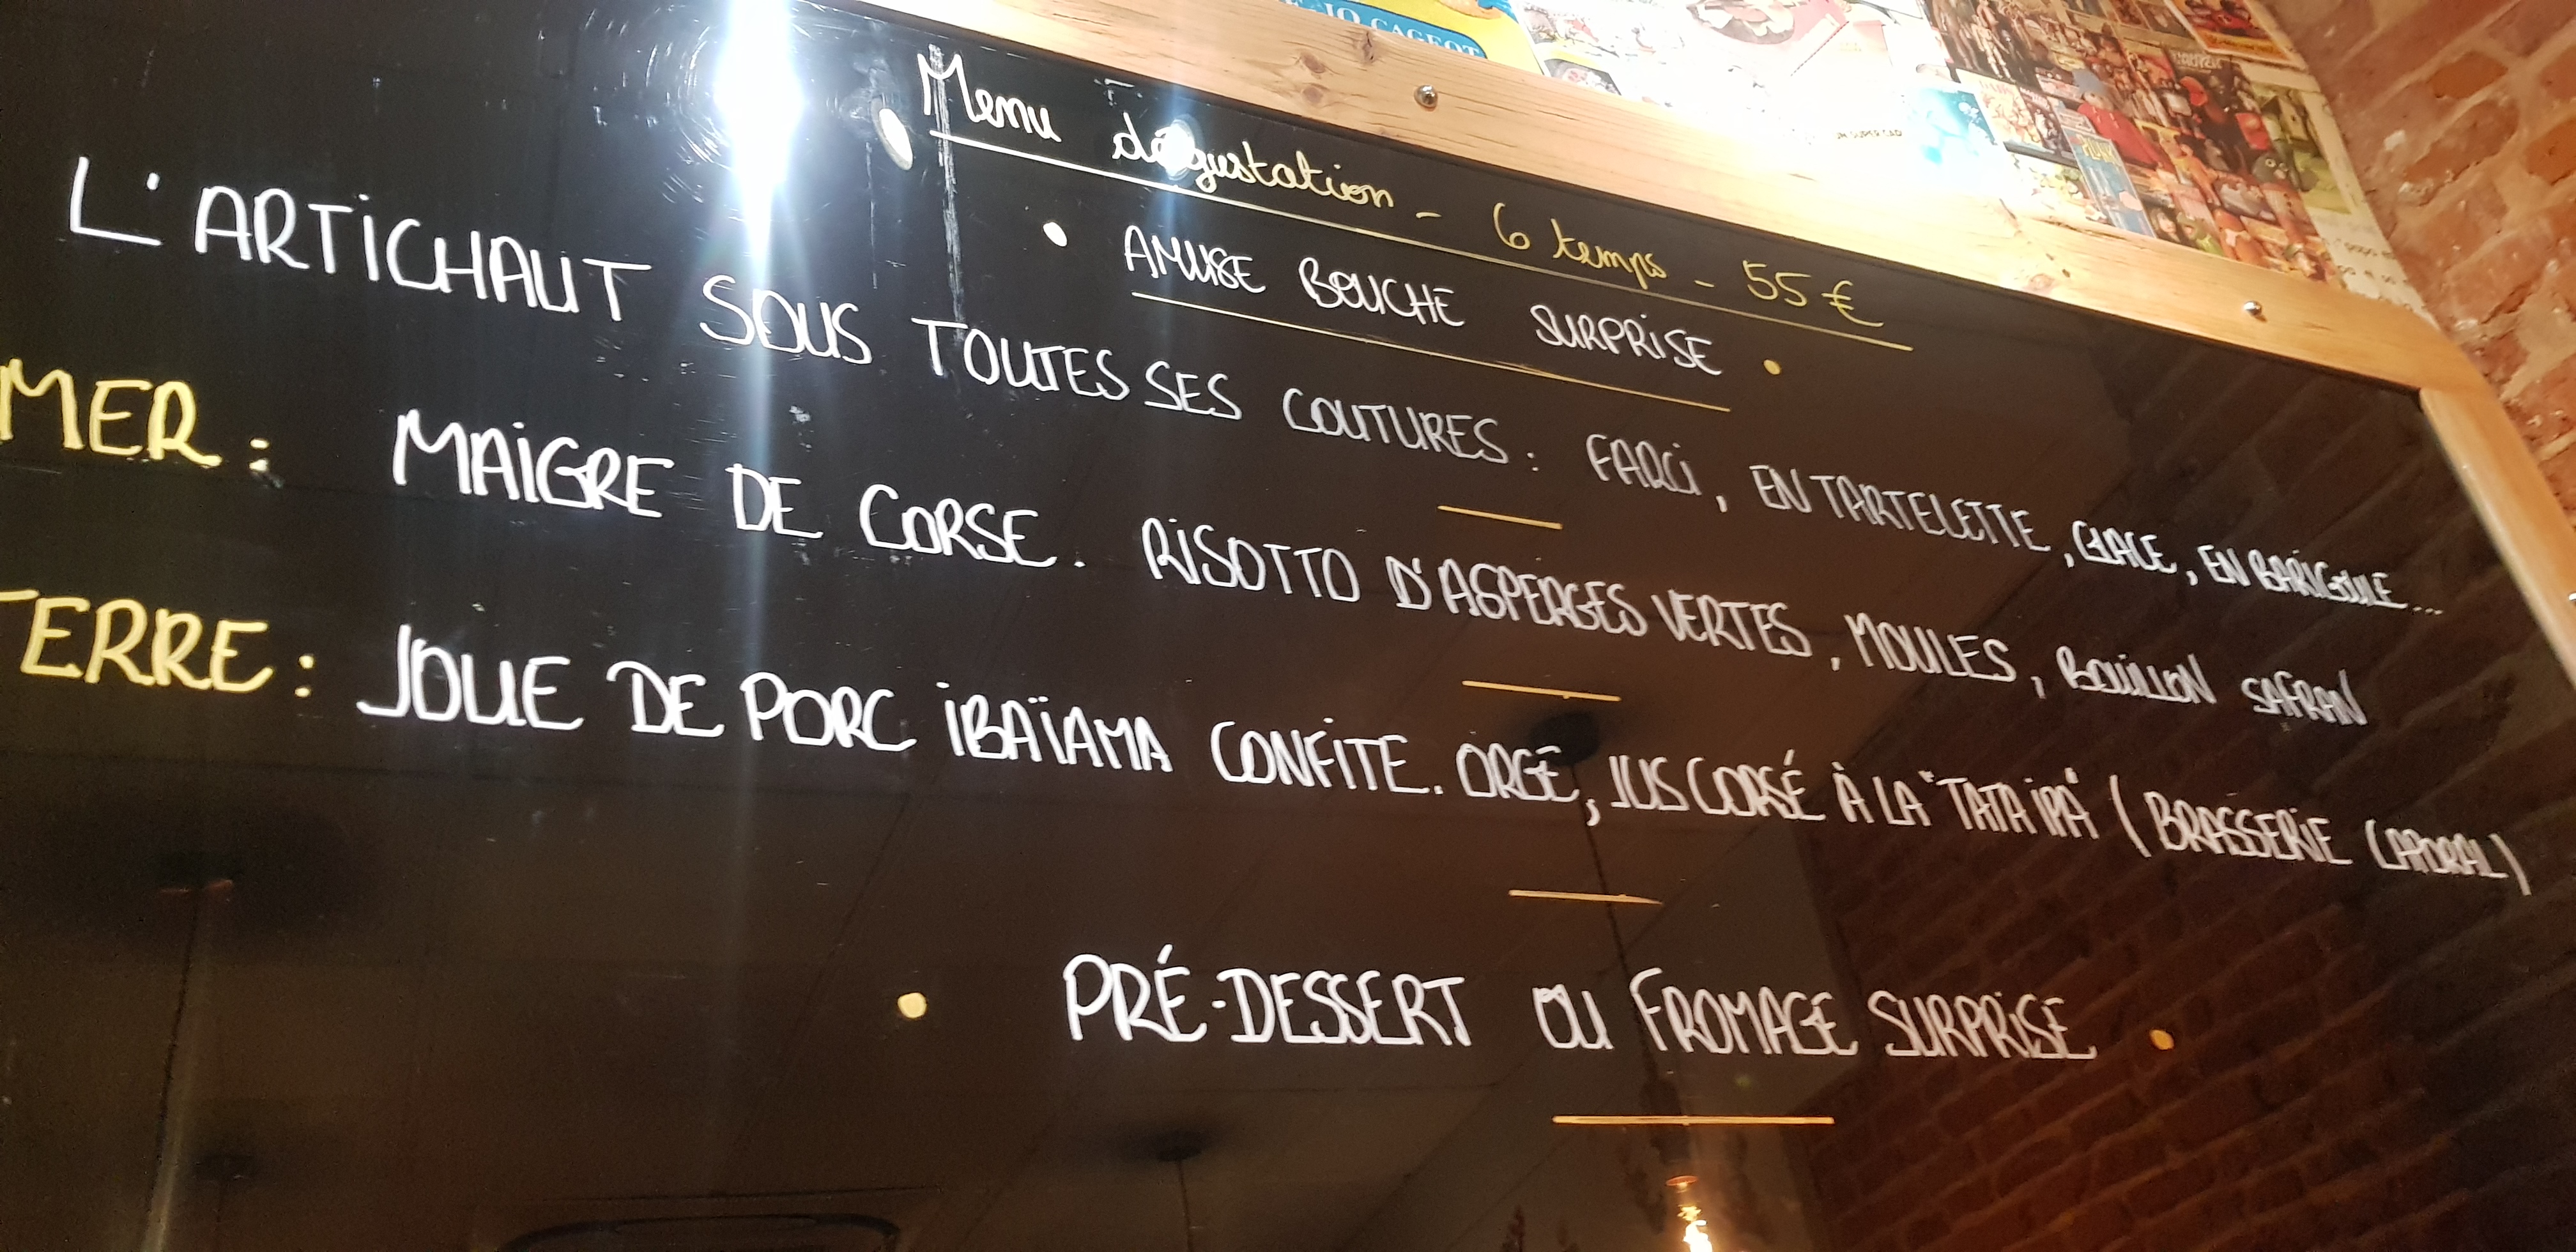 E JO CAGEOT
Menu dégustation - 6 temps - 55 €
• AMUSE BOUCHE SURPRISE •
L'ARTICHAUT SOUS TOUTES SES COUTURES : FARCI, EN TARTELETTE, GLACE, EN BARIGOULE...
MER : MAIGRE DE CORSE. RISOTTO D'ASPERGES VERTES, MOULES, BOUILLON SAFRAN
TERRE : JOUE DE PORC IBAÏAMA CONFITE. ORGE, JUS CORSÉ À LA "TATA IPA" (BRASSERIE CAPORAL)
• PRÉ-DESSERT OU FROMAGE SURPRISE •